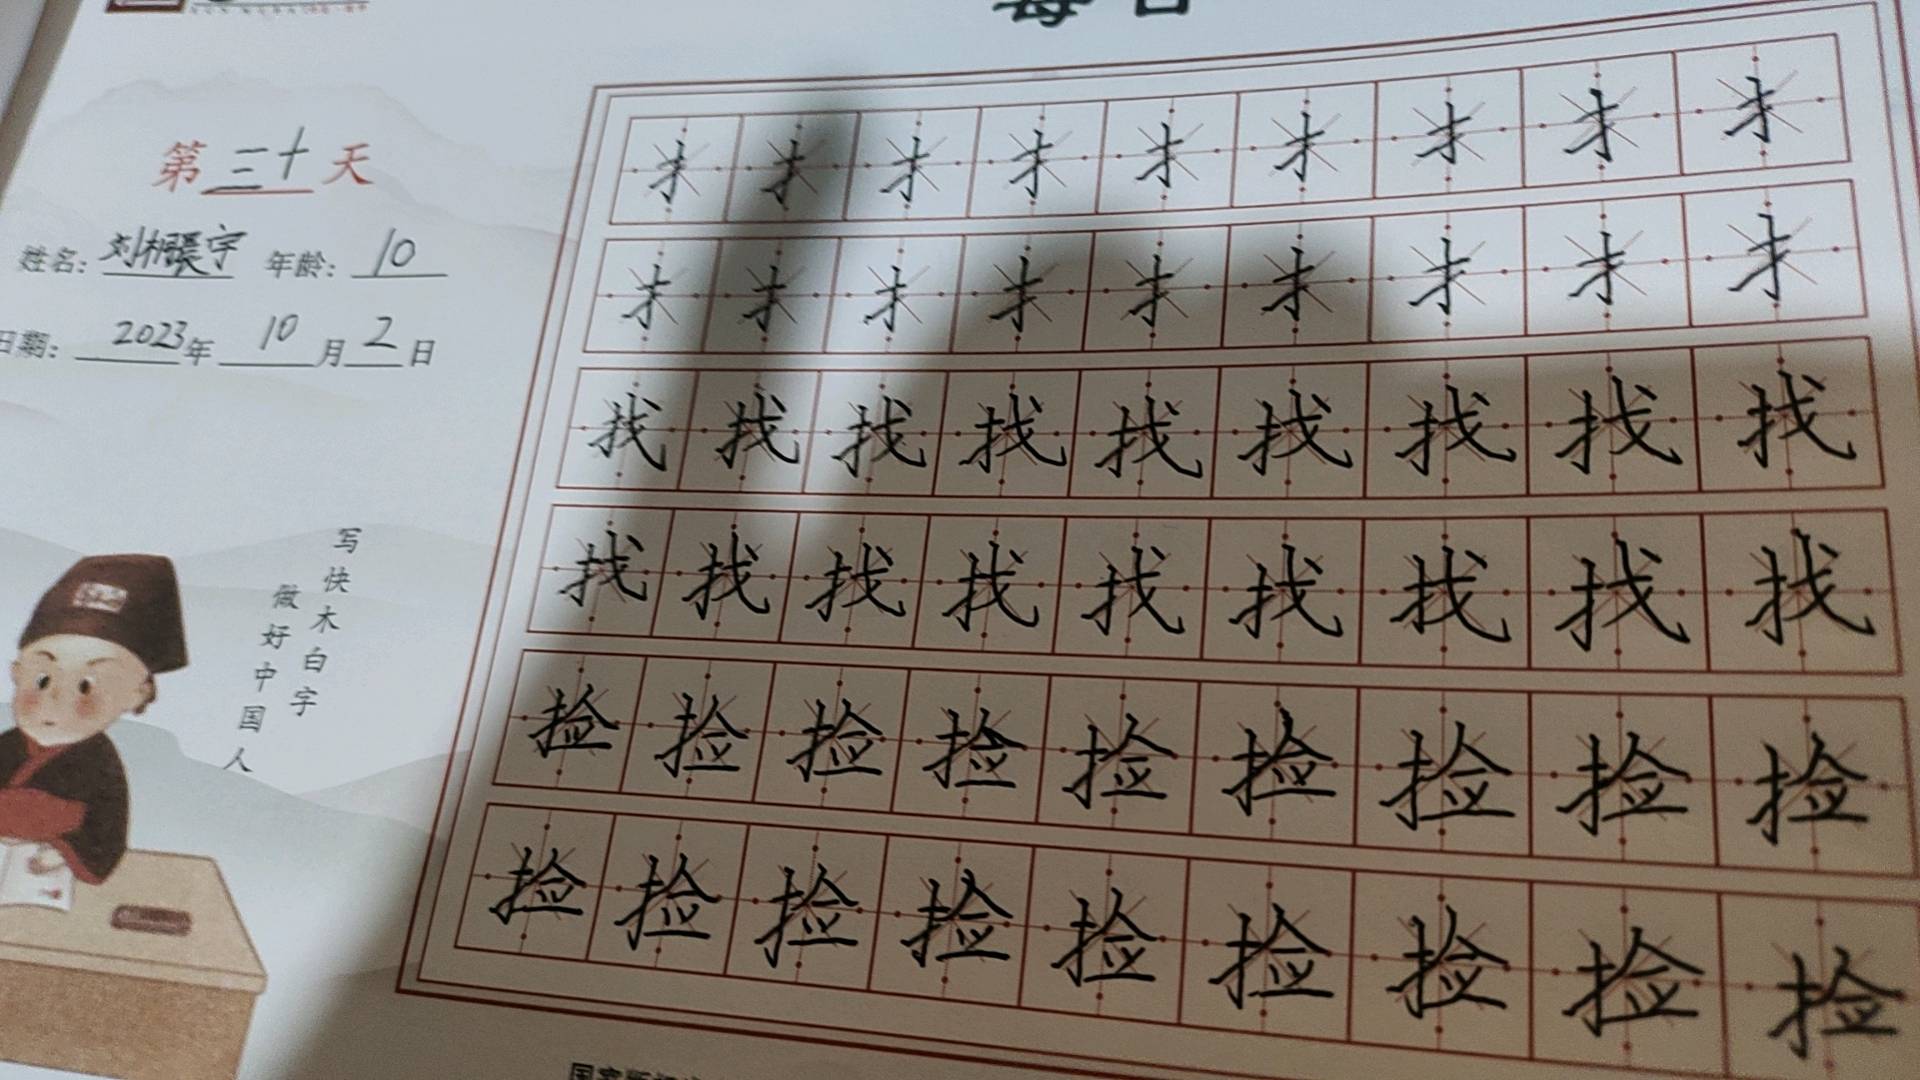 第三十天
姓名：刘桐宇 年龄：10
日期：2023年10月2日
写快木白字
做好中国人
扌扌扌扌扌扌扌扌扌
扌扌扌扌扌扌扌扌扌
找找找找找找找找找
找找找找找找找找找
捡捡捡捡捡捡捡捡捡
捡捡捡捡捡捡捡捡捡